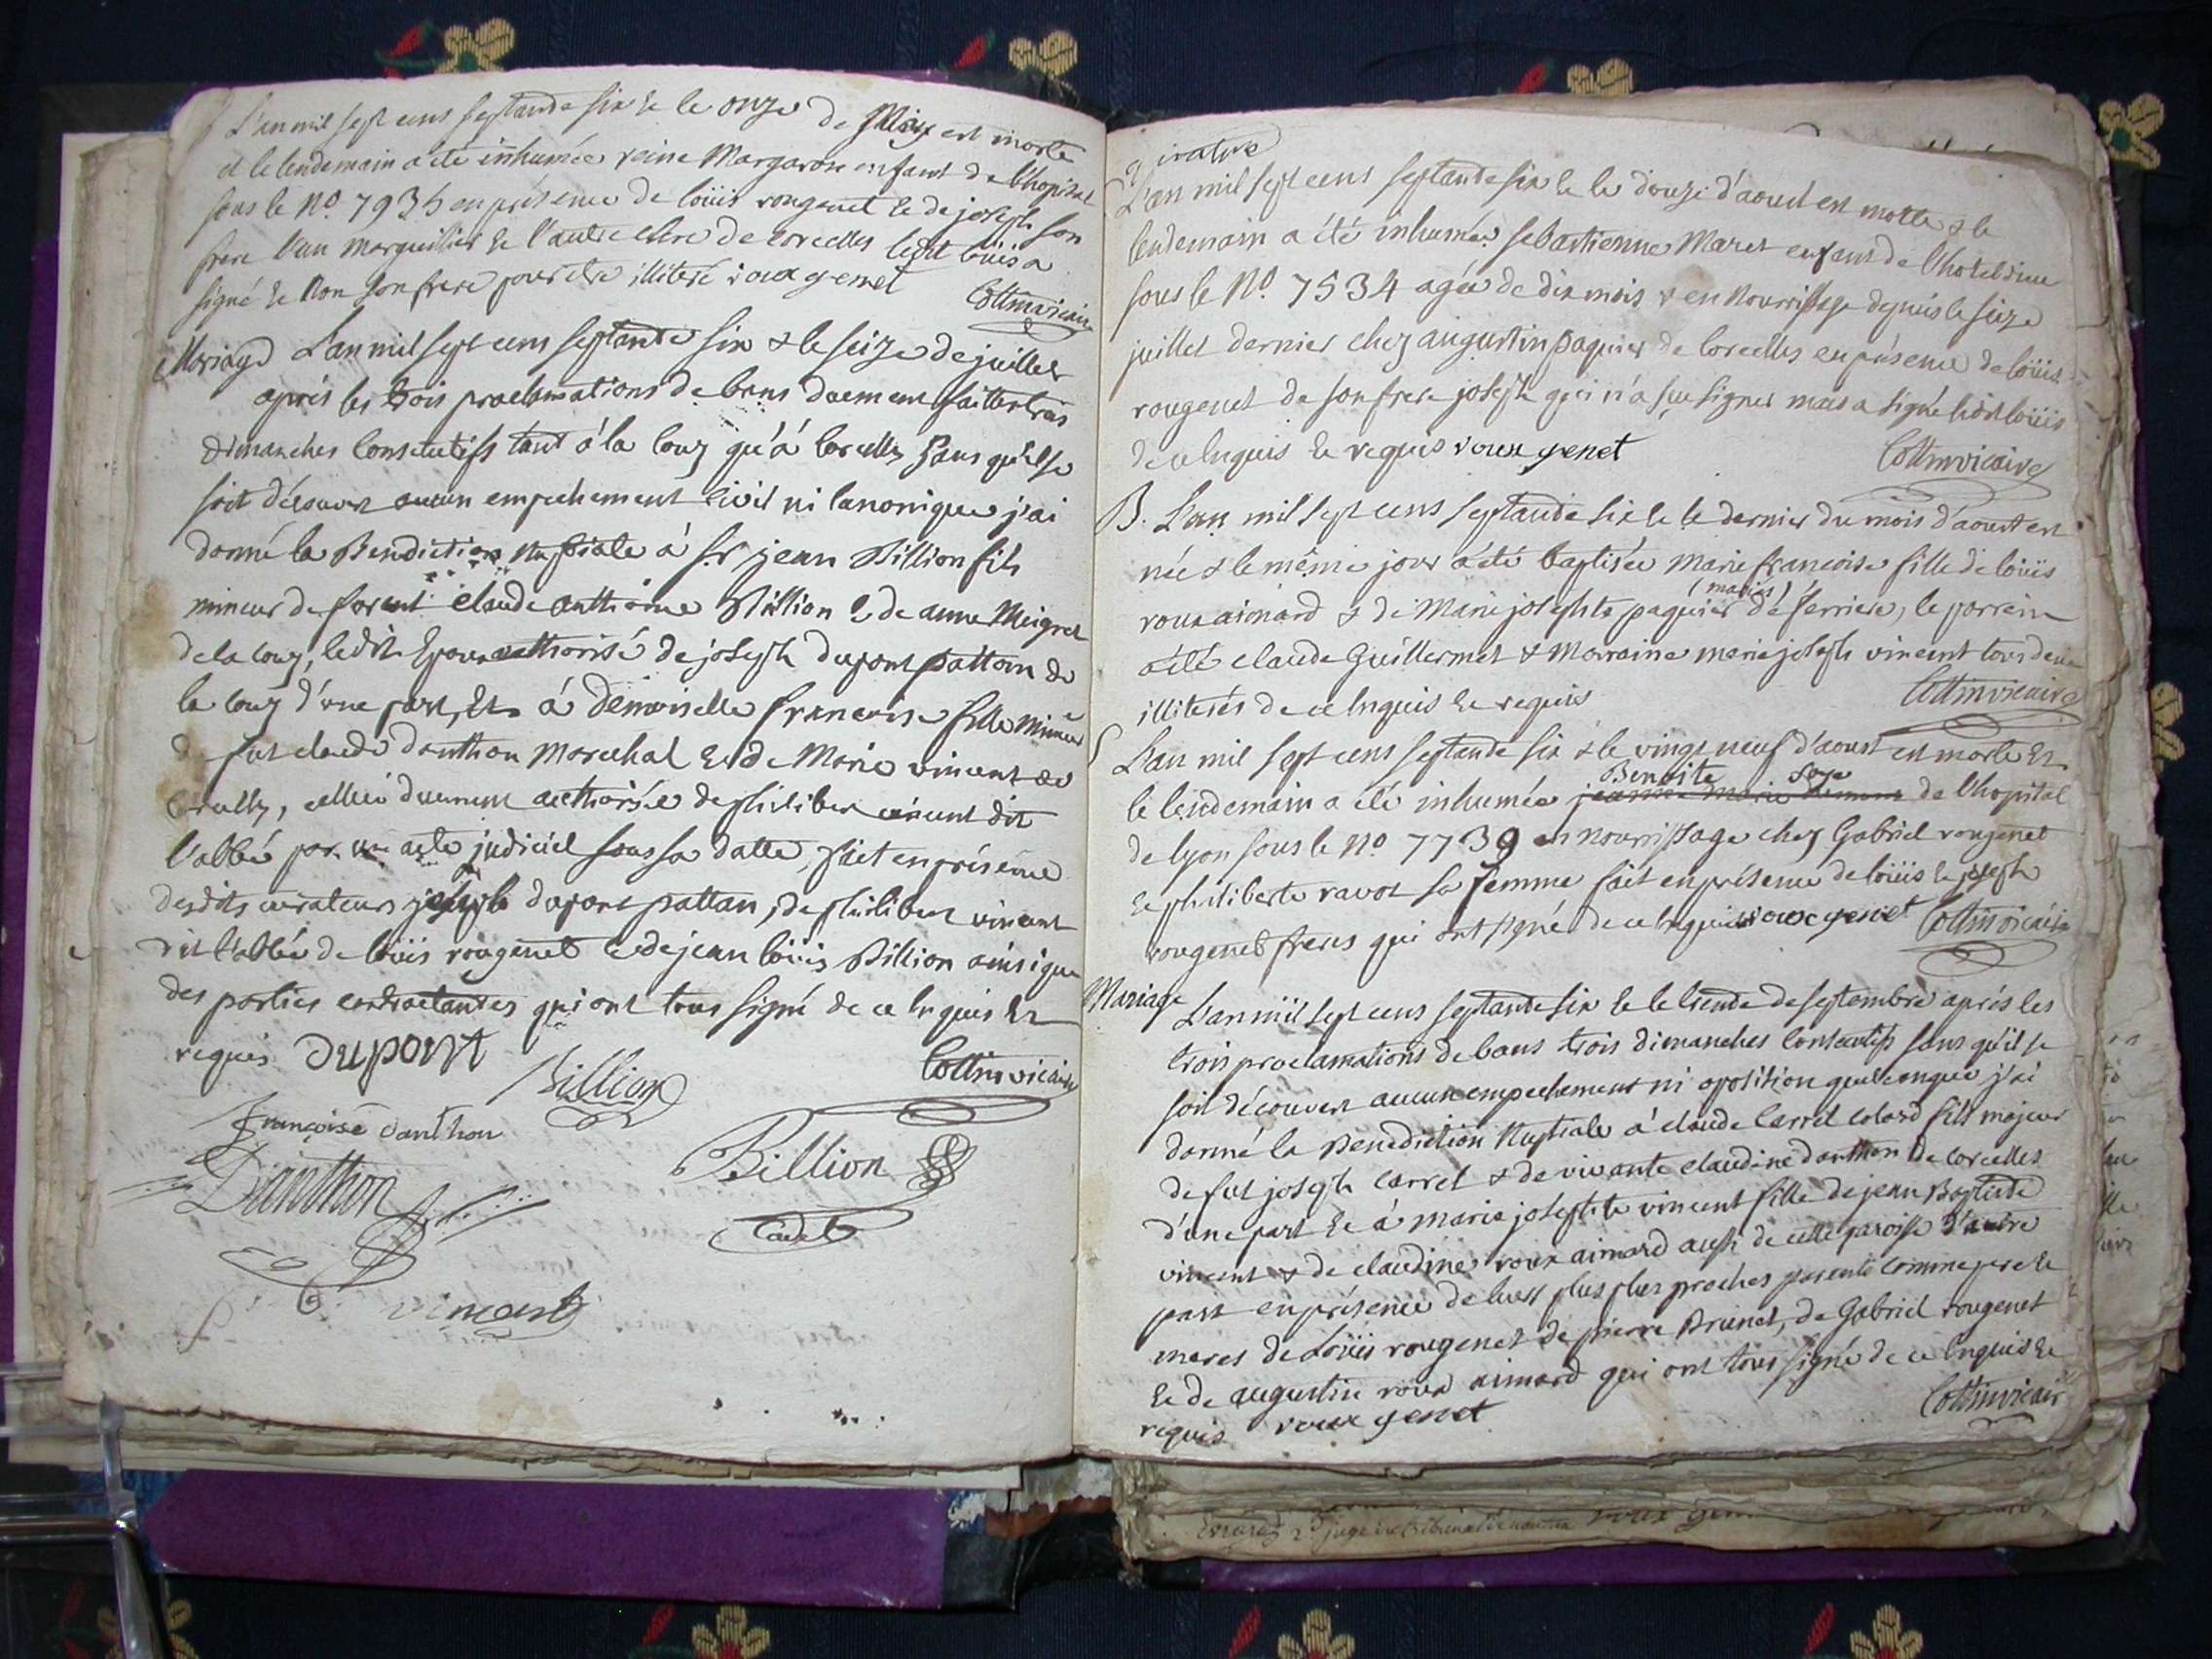 L'an mil sept cens septante six & le onze de May est morte
et le lendemain a été inhumée reine Margarone enfant de l'hopital
sous le No. 7935 en présence de loüis rougenet & de joseph son
frere l'un marguillier & l'autre clerc de corcelles ledit loüis a
signé & non son frere pour etre illiteré roux genet
Cottin vicaire
Mariage L'an mil sept cens septante six & le seize de juillet
aprés les trois proclamations de bans duement faittes trois
dimanches consecutifs tant á la couz qu'á corcelles sans qu'il se
soit découvert aucun empechement civil ni canonique j'ai
donné la Benediction Nuptiale á sr jean Billion fils
mineur de claude anthoine Billion & de anne Meigret
de la couz, ledit Epoux authorisé de joseph dupont pattan de
la couz d'une part, Et á demoiselle francoise fille mineure
de fut claude danthon Marechal & de Marie vincent de
corcelles, celleci duement authorisée de philibert vincent dit
l'abbé par un acte judiciel sous sa datte, fait en présence
desdits curateurs joseph dupont pattan, de philibert vincent
dit l'abbé de loüis rougenet & de jean loüis Billion ainsi que
des parties contractantes qui ont tous signé de ce Enquis Et
requis Dupont
Billion
Cottin vicaire
françoise danthon
Danthon
Billion
Cadet
vincent
L'an mil sept cens septante six & le douze d'aoust est morte & le
lendemain a été inhumée sebastienne Maret enfant de l'hotel dieu
sous le No. 7534 agée de dix mois & en Nourrissage depuis le seize
juillet dernier chez augustin paquier de corcelles en présence de loüis
rougenet de son frere joseph qui n'a sçu signer mais a signé ledit loüis
de ce Enquis & requis roux genet
Cottin vicaire
B. L'an mil sept cens septante six & le dernier du mois d'aoust est
née & le même jour a été baptisée Marie francoise fille de loüis
roux aimard & de Marie josephte paquier (mariés) de ferriere, le parrein
a été claude Guillermet & Marraine marie joseph vincent tous deux
illiterés de ce Enquis & requis
Cottin vicaire
L'an mil sept cens septante six & le vingt neuf d'aoust est morte Et
le lendemain a été inhumée Benoite de l'hopital
de lyon sous le No. 7739 en nourrissage chez Gabriel rougenet
& philiberte ravot sa femme fait en présence de loüis & joseph
rougenet freres qui ont signé de ce Enquis roux genet Cottin vicaire
Mariage L'an mil sept cens septante six & le trente de septembre aprés les
trois proclamations de bans trois dimanches consecutifs sans qu'il se
soit découvert aucun empechement ni oposition quelconque j'ai
donné la Benediction Nuptiale á claude Carrel colard fils majeur
de fut joseph carrel & de vivante claudine danthon de corcelles
d'une part & á marie josephte vincent fille de jean Baptiste
vincent & de claudine roux aimard aussi de cette paroisse d'autre
part en présence de leurs plus plus proches parents comme pere &
meres de Loüis rougenet de pierre Brunet, de Gabriel rougenet
& de augustin roux aimard qui ont tous signé de ce Enquis &
requis roux genet
Cottin vicaire